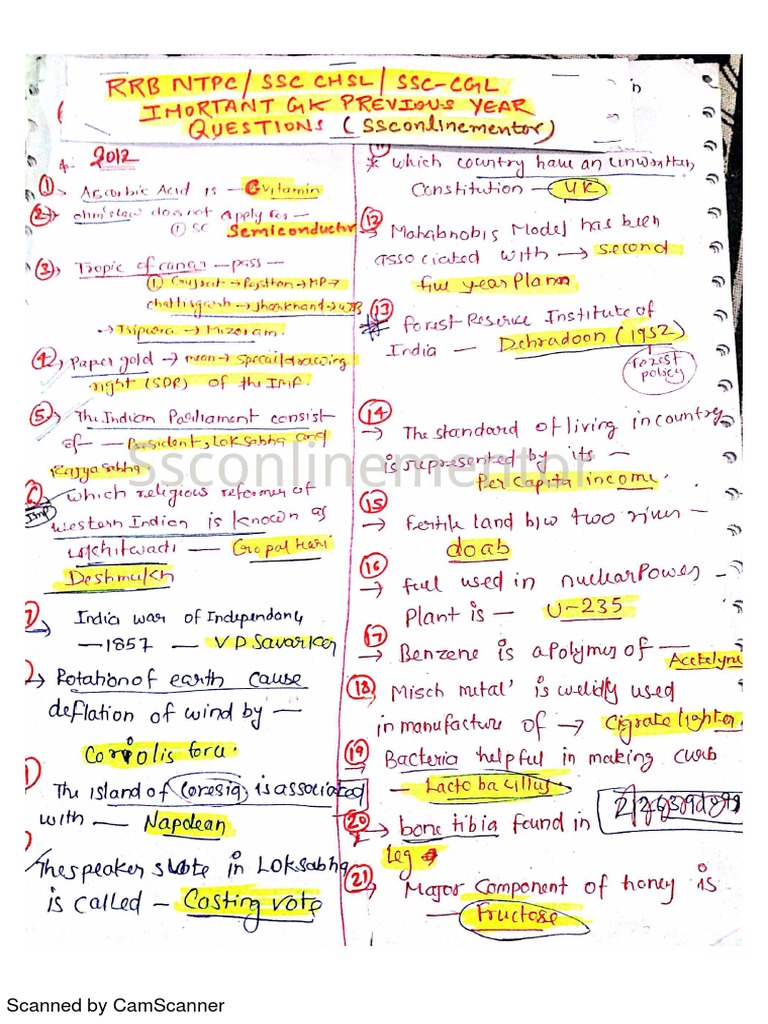 RRB NTPC/ SSC CHSL/ SSC-CGL
IMORTANT GK PREVIOUS YEAR
QUESTIONS (SSconlinementor)
2012
① Ascorbic Acid is – Cvitamin
② ohm's law does not apply for –
① SC Semiconductor
③ Tropic of cancer – pass –
① Gujrat → Rajsthan → MP →
chattisgarh → Jharkhand → WB
→ Tripura → Mizoram.
④ Paper gold → mean → special drawing
right (SDR) of the IMF.
⑤ The Indian Parliament consist
of – President, Lok sabha and
Rajya sabha.
which religious reformer of
Imp
western Indian is known as
Lokhitwadi — Gopal Hari
Deshmukh
7 India war of Independeny
– 1857 – V D Savarker
Rotation of earth cause
deflation of wind by —
Coriolis force.
The island of Coresia is associated
with — Napolean
The speaker's vote in LOKsabha
is called – Casting vote
11
* which country have an unwritten
Constitution – UK
⑫
→ Mahabnobis Model has been
associated with → second
five year Plan
⑬
Forest Reserve Institute of
India — Dehradoon (1952)
forest
policy
⑭
→ The standard of living in country
is represented by its –
Per Capita income.
⑮
→ Fertile land b/w two river –
doab
⑯
→ fuel used in nuclear Power
Plant is – U-235
⑰
→ Benzene is a Polymer of —
Acetelyne
⑱ Misch metal' is welidly used
in manufacture of → Cigrate lighter.
⑲
→ Bacteria helpful in making curb
– Lacto bacillus
⑳
→ bone tibia found in
leg
㉑
→ Major Component of honey is
— Fructose
Ssconlinementor
Scanned by CamScanner